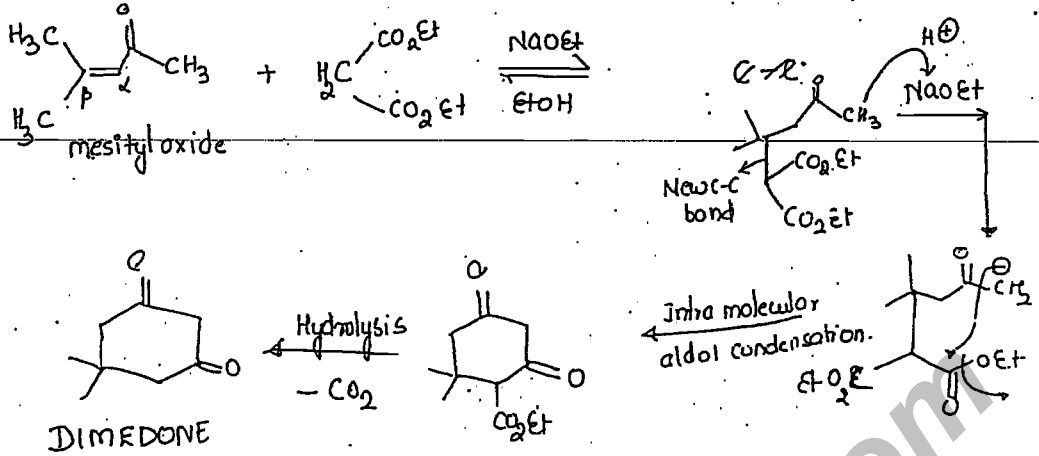 H₃C
O
CH₃
β
α
H₃C
mesityl oxide
+
H₂C
CO₂Et
CO₂Et
NaOEt
EtOH
O
CH₃
H⊕
NaOEt
New C-C
bond
CO₂Et
CO₂Et
O
⊖
CH₂
OEt
O
EtO₂C
Intra molecular
aldol condensation.
O
O
CO₂Et
Hydrolysis
- CO₂
O
O
DIMEDONE
om